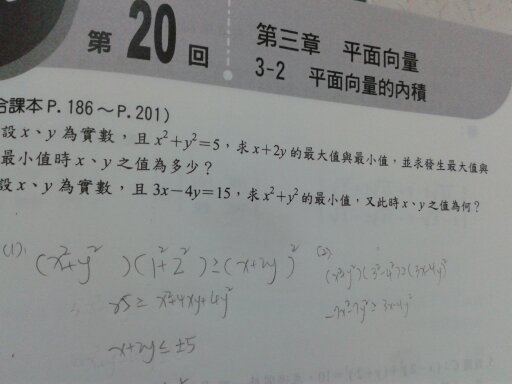 第20回
第三章 平面向量
3-2 平面向量的內積
合課本P.186～P.201)
設x、y為實數，且x²+y²=5，求x+2y的最大值與最小值，並求發生最大值與
最小值時x、y之值為多少？
設x、y為實數，且3x−4y=15，求x²+y²的最小值，又此時x、y之值為何？
(1). (x²+y²)(1²+2²)≥(x+2y)²
25≥x²+4xy+4y²
x+2y≤±5
(2). (x²+y²)(3²-4²)≥(3x-4y)²
-7x²-7y²≥3x-4y²